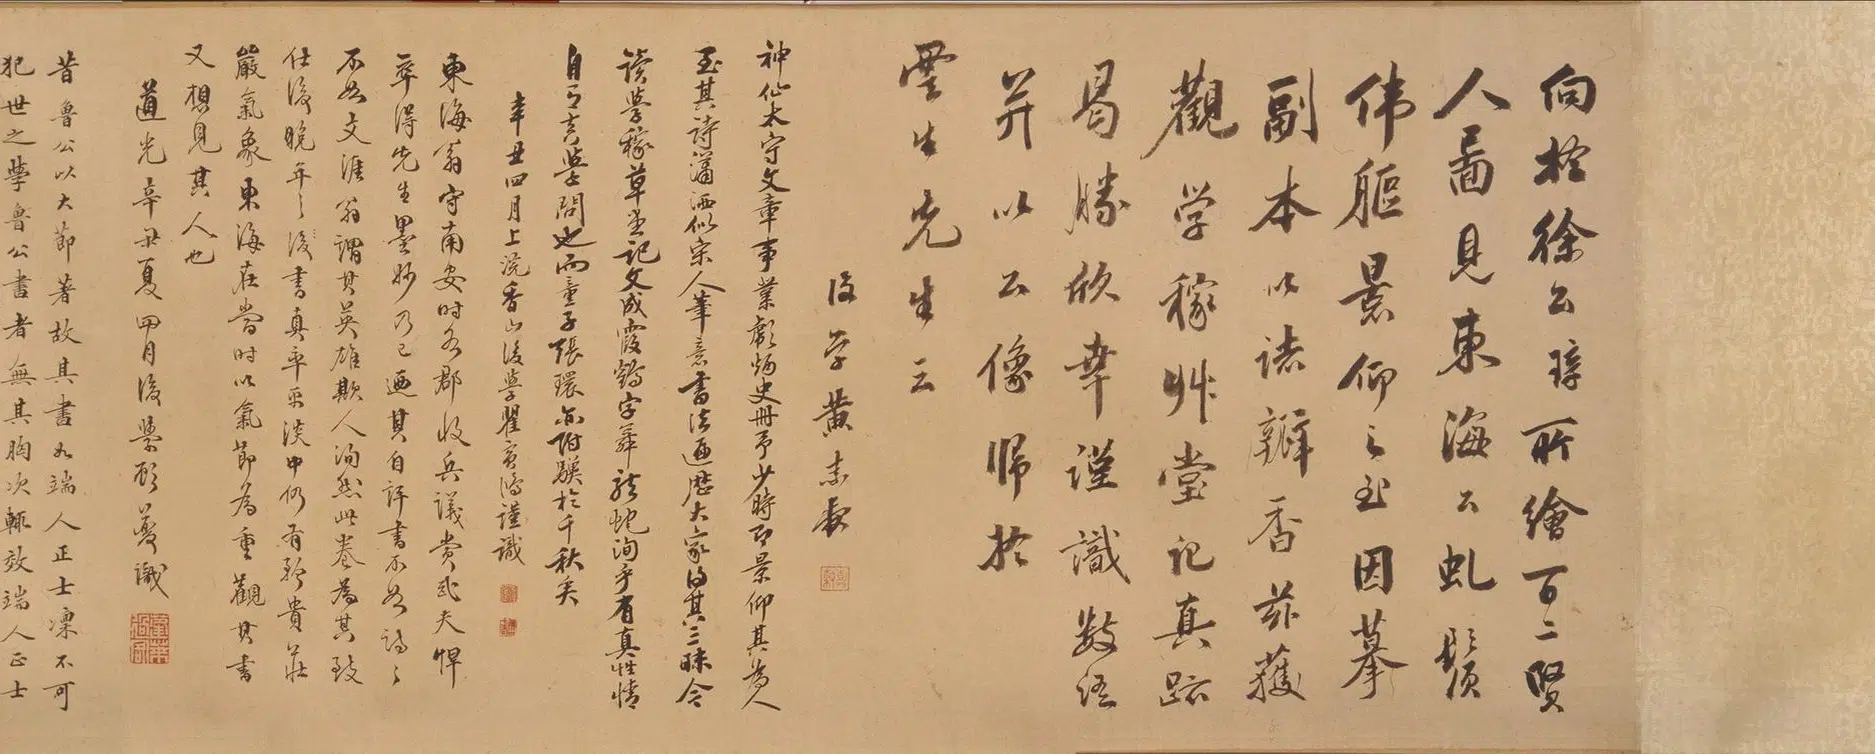 向於徐公璋所繪百二賢
人啚見東海公虬鬚
伟軀景仰之至因摹
副本以誌瓣香茲獲
觀学稼艸堂记真跡
曷勝欣幸謹識数语
并以公像归於
先生云
後学黄
神仙太守文章事業彪炳史冊予少時即景仰其為人
至其詩瀟洒似宋人筆意書法遍歴大家得其三昧今
读学稼草堂記文成霞鶴字舞龍蛇洵乎有真性情
自有真学問也而童子張環亦附驥於千秋矣
辛丑四月上浣香山後学翟謹識
東海翁守南安時為郡收兵議賞武夫悍
卒得先生墨妙乃已迺其自評書不如詩
不如文涯翁謂其英雄欺人洵然此卷為其致
仕後晚年之後書真率平淡中仍有矜貴莊
嚴氣象東海在當時以氣節為重觀其書
又想見其人也
道光辛丑夏四月後學顧夔識
昔魯公以大節著故其書如端人正士凜不可
犯世之學魯公書者無其胸次輒效端人正士